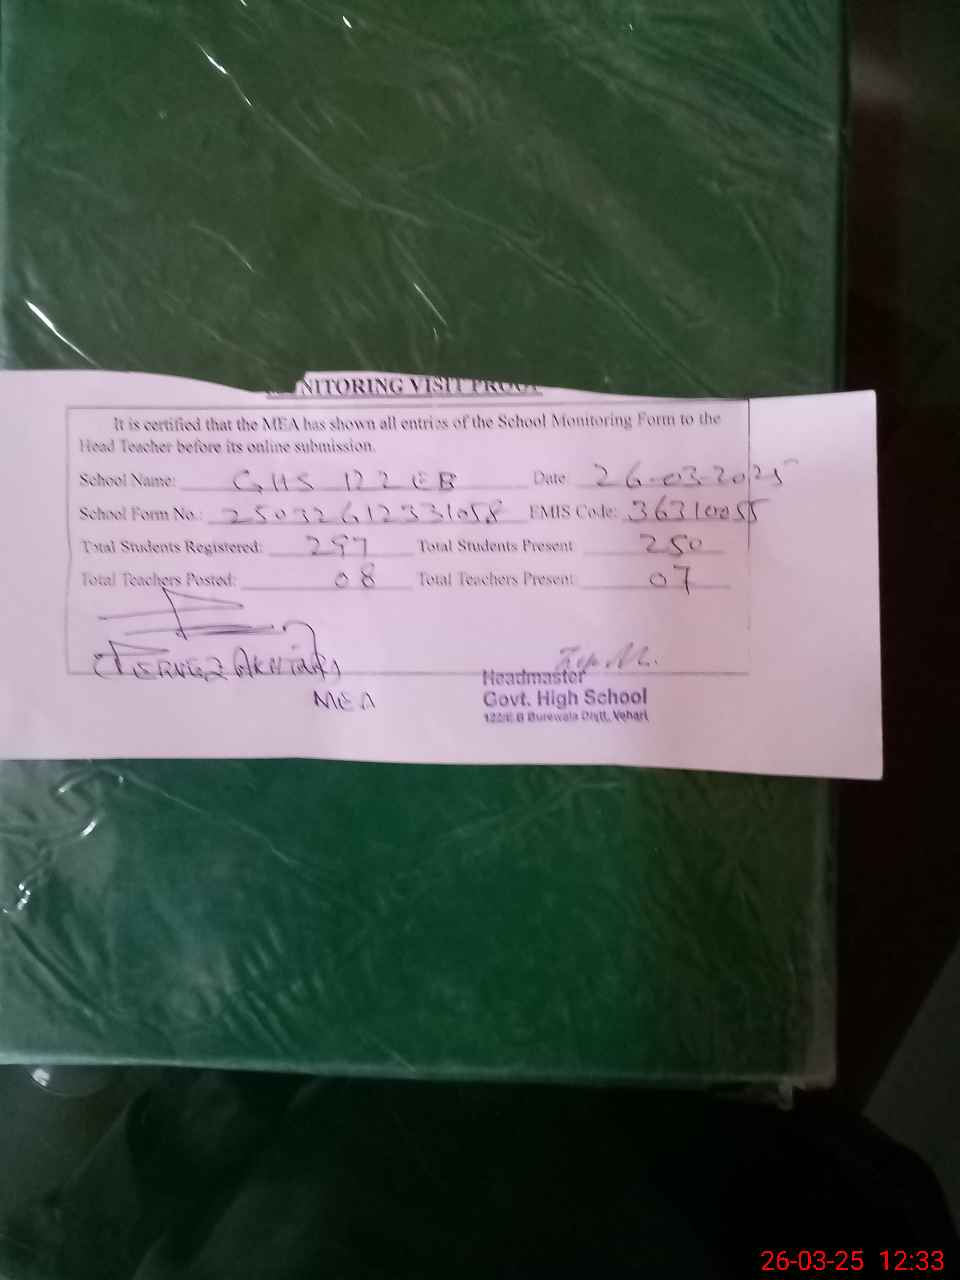 NITORING VISIT PROOF
It is certified that the MEA has shown all entries of the School Monitoring Form to the
Head Teacher before its online submission.
School Name: GHS 122 EB Date: 26-03-2025
School Form No.: 25032612331058 EMIS Code: 36310055
Total Students Registered: 297 Total Students Present: 250
Total Teachers Posted: 08 Total Teachers Present: 07
MEA
Headmaster
Govt. High School
122/E.B Burewala Distt. Vehari
26-03-25 12:33